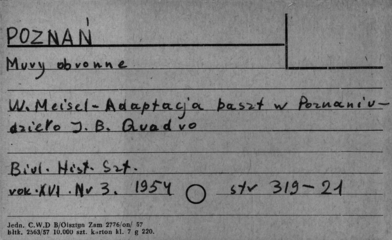 POZNAŃ
Mury obronne
W. Meisel - Adaptacja baszt w Poznaniu -
dzieło J. B. Quadro
Biul. Hist. Szt.
rok. XVI. Nr 3. 1954 str 319-21
Jedn. C.W.D B/Olsztyn Zam 2776/on/ 57
bltk. 2563/57 10.000 szt. karton kl. 7 g 220.